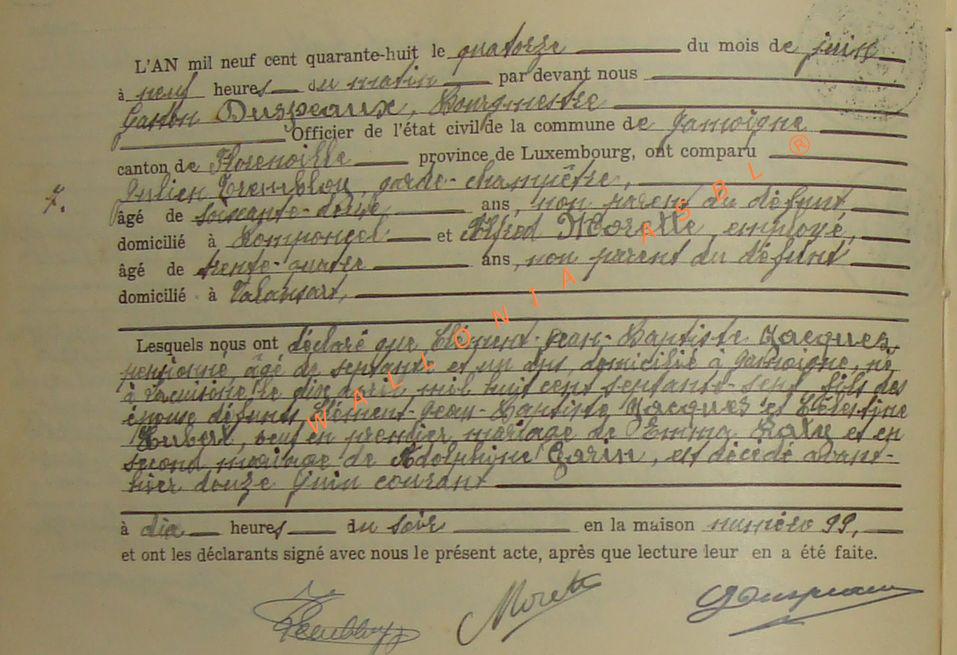 L'AN mil neuf cent quarante-huit le quatorze du mois de juin
à neuf heures du matin par devant nous
Gaston Duspeaux, Bourgmestre
Officier de l'état civil de la commune de Jamoigne
canton de Florenville province de Luxembourg, ont comparu
Julien Tremblou, garde-champêtre,
7.
âgé de soixante- ans, non parent du défunt
domicilié à Romponcel et Alfred Morette employé,
âgé de trente-quatre ans, non parent du défunt
domicilié à Valansart,
Lesquels nous ont déclaré que Clément-Jean-Baptiste Jacques,
pensionné, âgé de septante et un ans, domicilié à Jamoigne, né
à Lacuisine le dix avril mil huit cent septante-sept, fils des
époux défunts Clément-Jean-Baptiste Jacques et Célestine
Hubert, veuf en premier mariage de Emma et en
second mariage de Adolphine Gorin, est décédé avant-
hier douze juin courant
à dix heures du soir en la maison numéro 99,
et ont les déclarants signé avec nous le présent acte, après que lecture leur en a été faite.
Morette GDuspeaux
WALLONIA ASBL ®